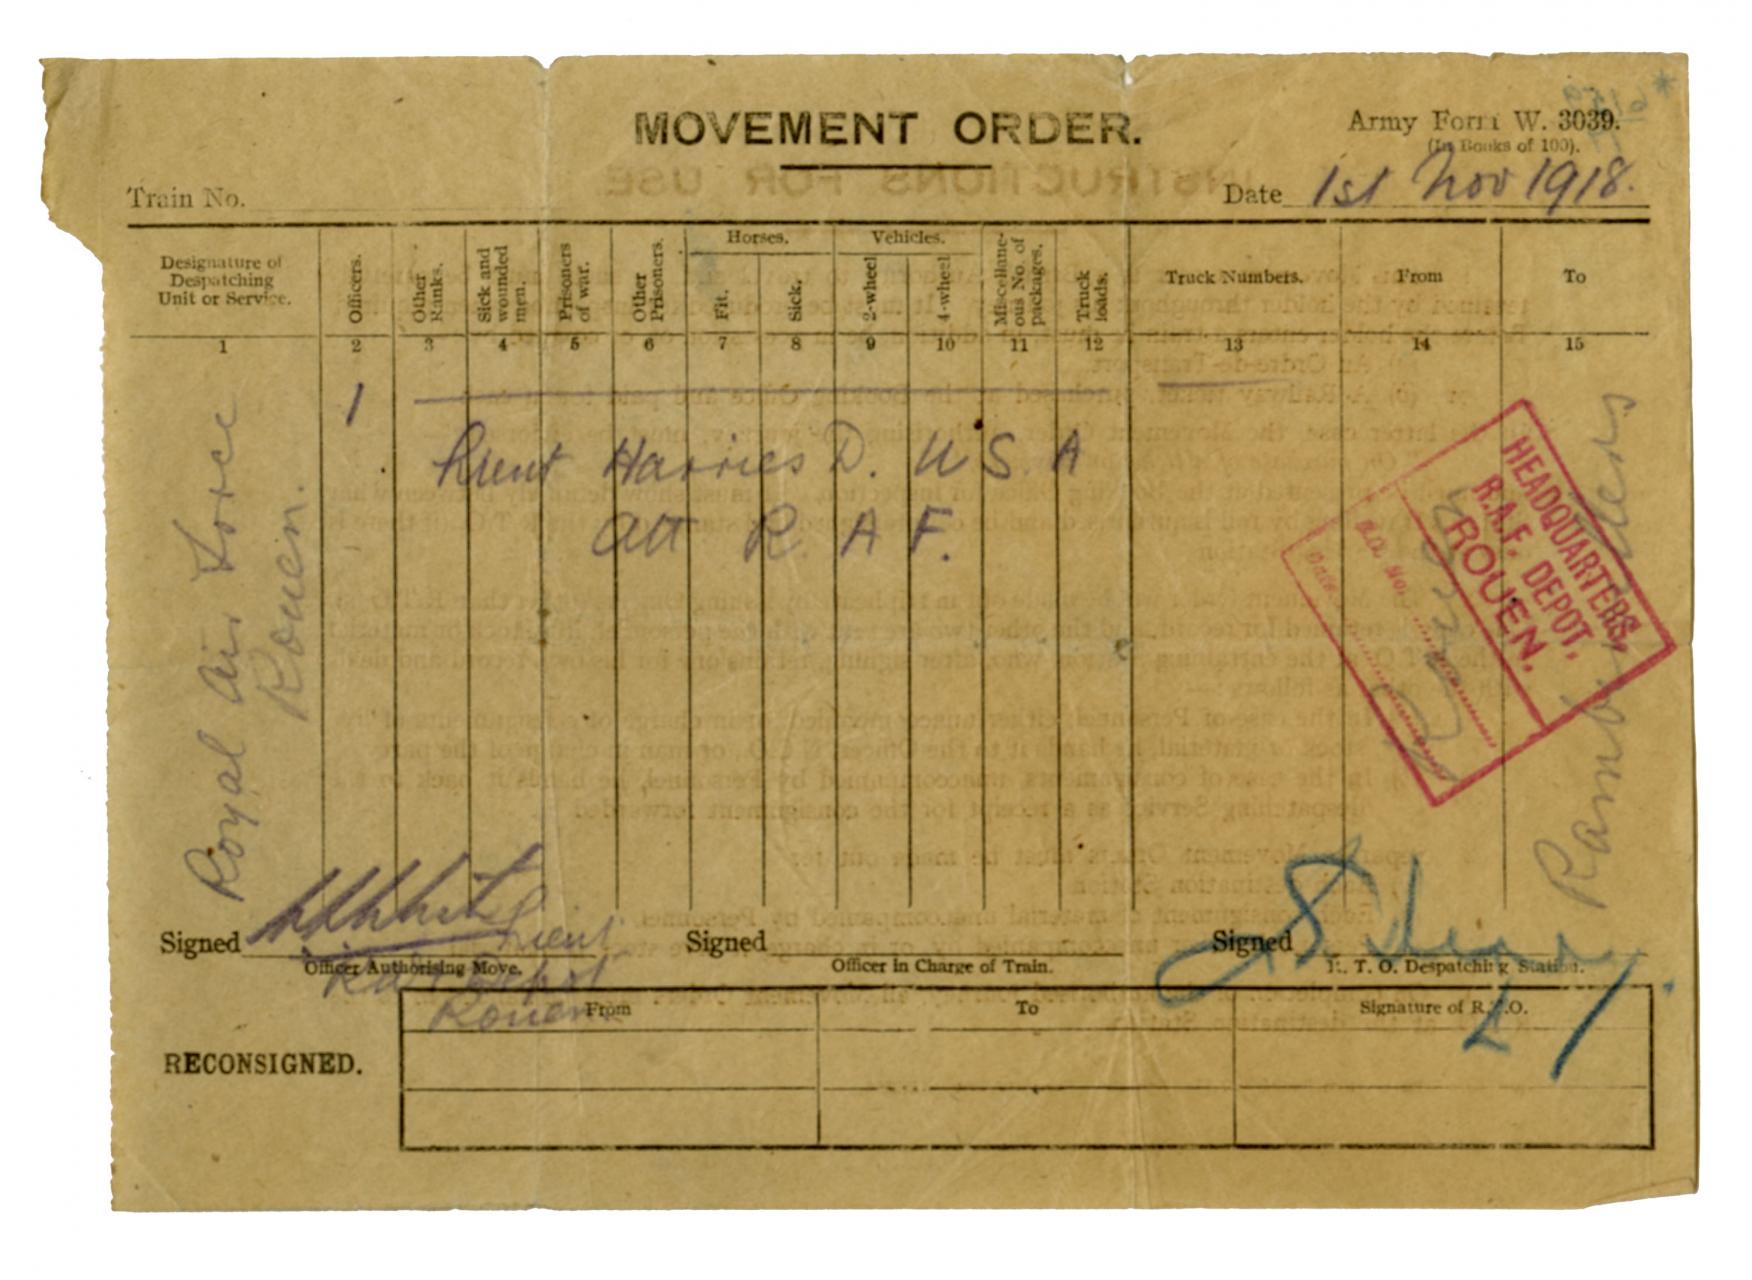 MOVEMENT ORDER.
Army Form W. 3039.
(In Books of 100).
Train No.
Date 1st Nov 1918.
Designature of Despatching Unit or Service.
Officers.
Other Ranks.
Sick and wounded men.
Prisoners of war.
Other Prisoners.
Horses.
Fit.
Sick.
Vehicles.
2-wheel
4-wheel
Miscellaneous No. of packages.
Truck loads.
Truck Numbers.
From
To
1 2 3 4 5 6 7 8 9 10 11 12 13 14 15
Royal Air Force
Rouen.
1
Lieut Harries D. U S. A
att R. A F.
Rouen
HEADQUARTERS,
R.A.F. DEPOT,
ROUEN.
No.
Date
Signed
Lieut
Officer Authorising Move.
Depot
Rouen
Signed
Officer in Charge of Train.
Signed
R. T. O. Despatching Station.
RECONSIGNED.
From
To
Signature of R.T.O.